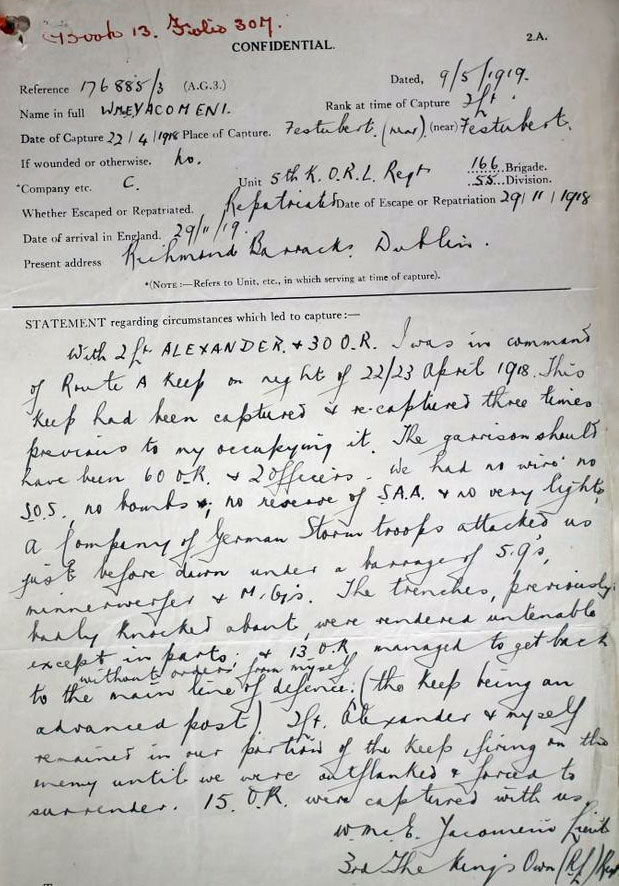 Book 13. Folio 307.
CONFIDENTIAL.
2.A.
Reference 176885/3 (A.G.3.)
Dated, 9/5/1919.
Name in full W.McE YACOMENI.
Rank at time of Capture 2/Lt.
Date of Capture 22/4/1918 Place of Capture. Festubert. (near) (near) Festubert.
If wounded or otherwise. No.
*Company etc. C. Unit 5th K.O.R.L. Regt 166 Brigade.
55 Division.
Whether Escaped or Repatriated. Repatriated Date of Escape or Repatriation 29/11/1918
Date of arrival in England. 29/11/19.
Present address Richmond Barracks. Dublin.
*(NOTE:—Refers to Unit, etc., in which serving at time of capture).
STATEMENT regarding circumstances which led to capture:—
With 2/Lt ALEXANDER. & 30 O.R. I was in command
of Route A Keep on night of 22/23 April 1918. This
Keep had been captured & re-captured three times
previous to my occupying it. The garrison should
have been 60 O.R. & 2 officers. We had no wire no
S.O.S, no bombs, no reserve of S.A.A. & no very lights
A Company of German Storm troops attacked us
just before dawn under a barrage of 5.9's,
minnerwerfer & M.G's. The trenches, previously
badly knocked about, were rendered untenable
except in parts, & 13 O.R. managed to get back
without orders from myself
to the main line of defence. (the Keep being an
advanced post) 2/Lt. Alexander & myself
remained in our portion of the Keep, firing on the
enemy until we were outflanked & forced to
surrender. 15 O.R. were captured with us.
W.McE. Yacomeni Lieut
3rd The King's Own (R.L.) Regt